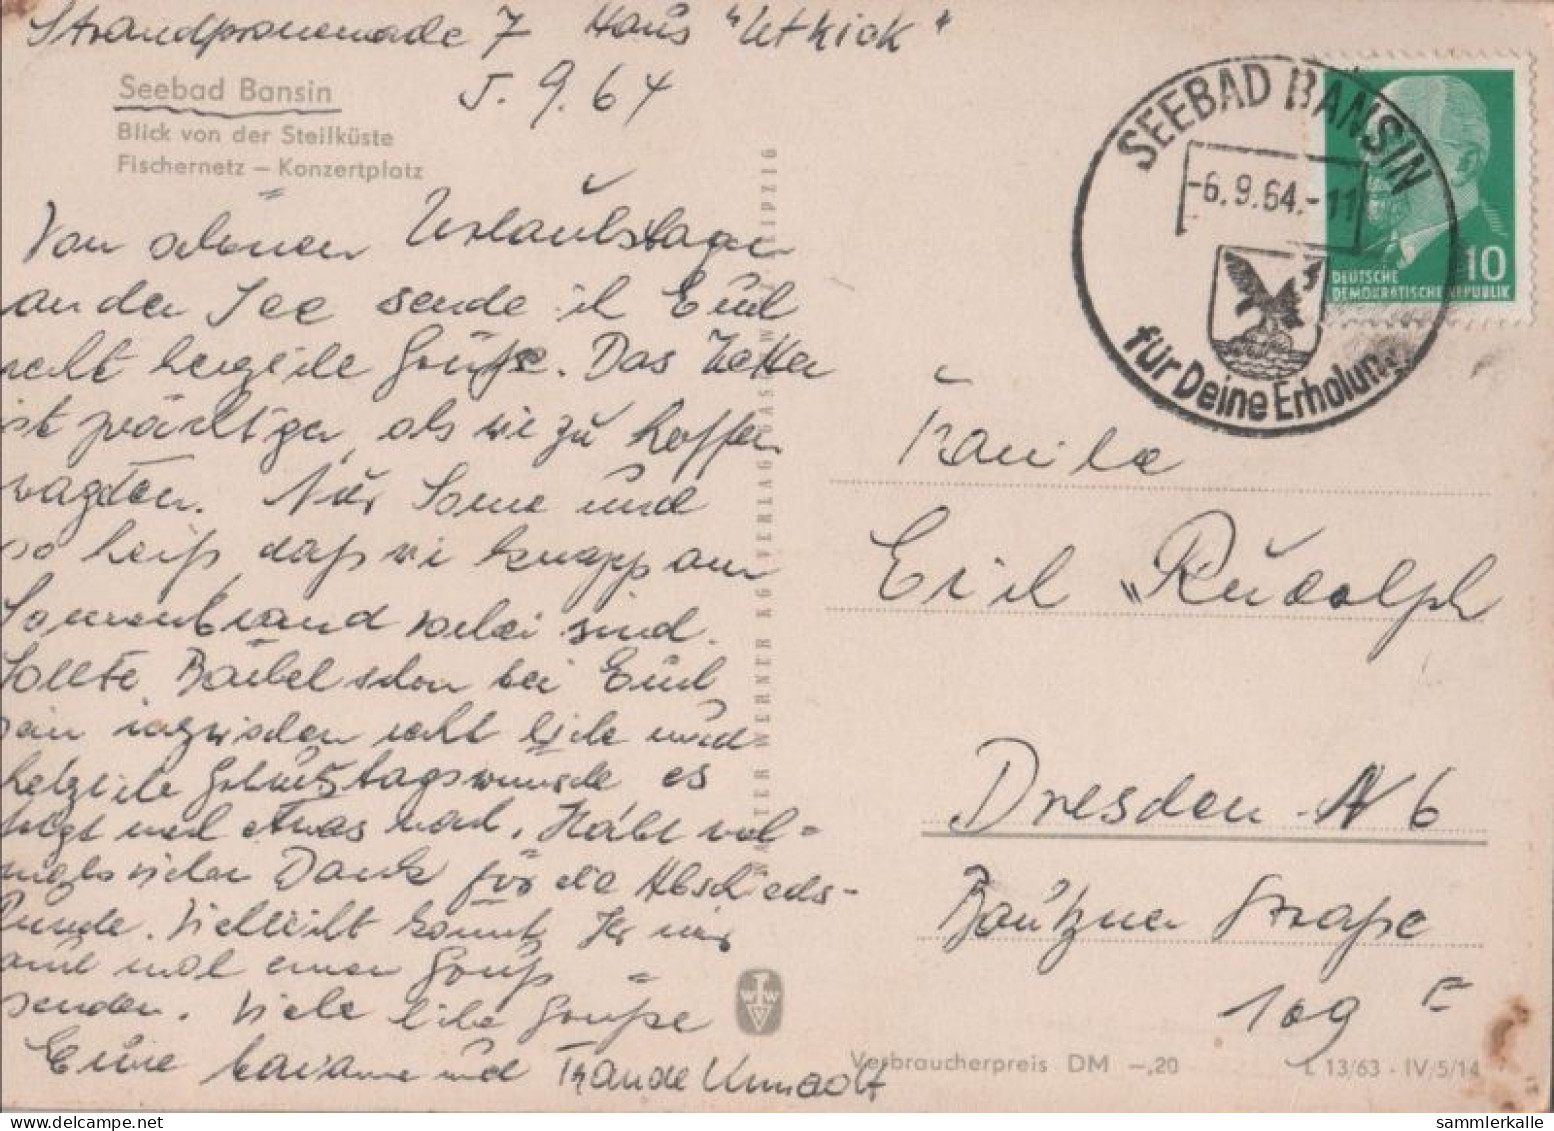 Strandpromenade 7 Haus "Utkiek"
5.9.64
Seebad Bansin
Blick von der Steilküste
Fischernetz — Konzertplatz
Von schönen Urlaubstagen
an der See sende ich Euch
recht herzliche Grüße. Das Wetter
ist prächtiger, als wir zu hoffen
wagten. Nur Sonne und
so heiß daß wir knapp am
Sonnenbrand vorbei sind.
Sollte Bärbel schon bei Euch
sein inzwischen recht liebe und
herzliche Geburtstagswünsche es
folgt noch etwas nach. Habt noch-
mals vielen Dank für die Abschieds-
runde. Vielleicht könnt Ihr mir
auch mal einen Gruß
senden. Viele liebe Grüße
Eure und Traude
WALTER WERNER KG VERLAG LEIPZIG
WW
SEEBAD BANSIN
-6.9.64.-11
für Deine Erholung
10
DEUTSCHE
DEMOKRATISCHE REPUBLIK
Familie
Erich Rudolph
Dresden N 6
Bautzner Straße
109 E
Verbraucherpreis DM —,20
L 13/63 - IV/5/14
sammlerkalle